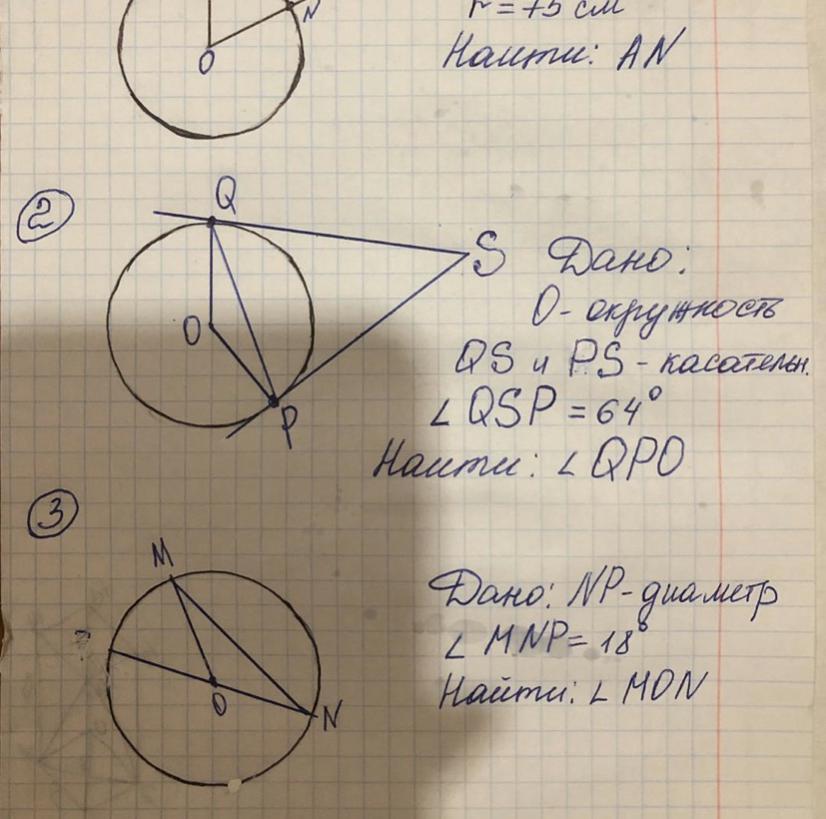 N
r = 75 см
O
Наити: AN
2
Q
S
Дано:
O - окружность
O
QS и PS - касательн.
∠ QSP = 64°
P
Наити: ∠ QPO
3
M
Дано: NP - диаметр
∠ MNP = 18°
Найти: ∠ MON
O
N